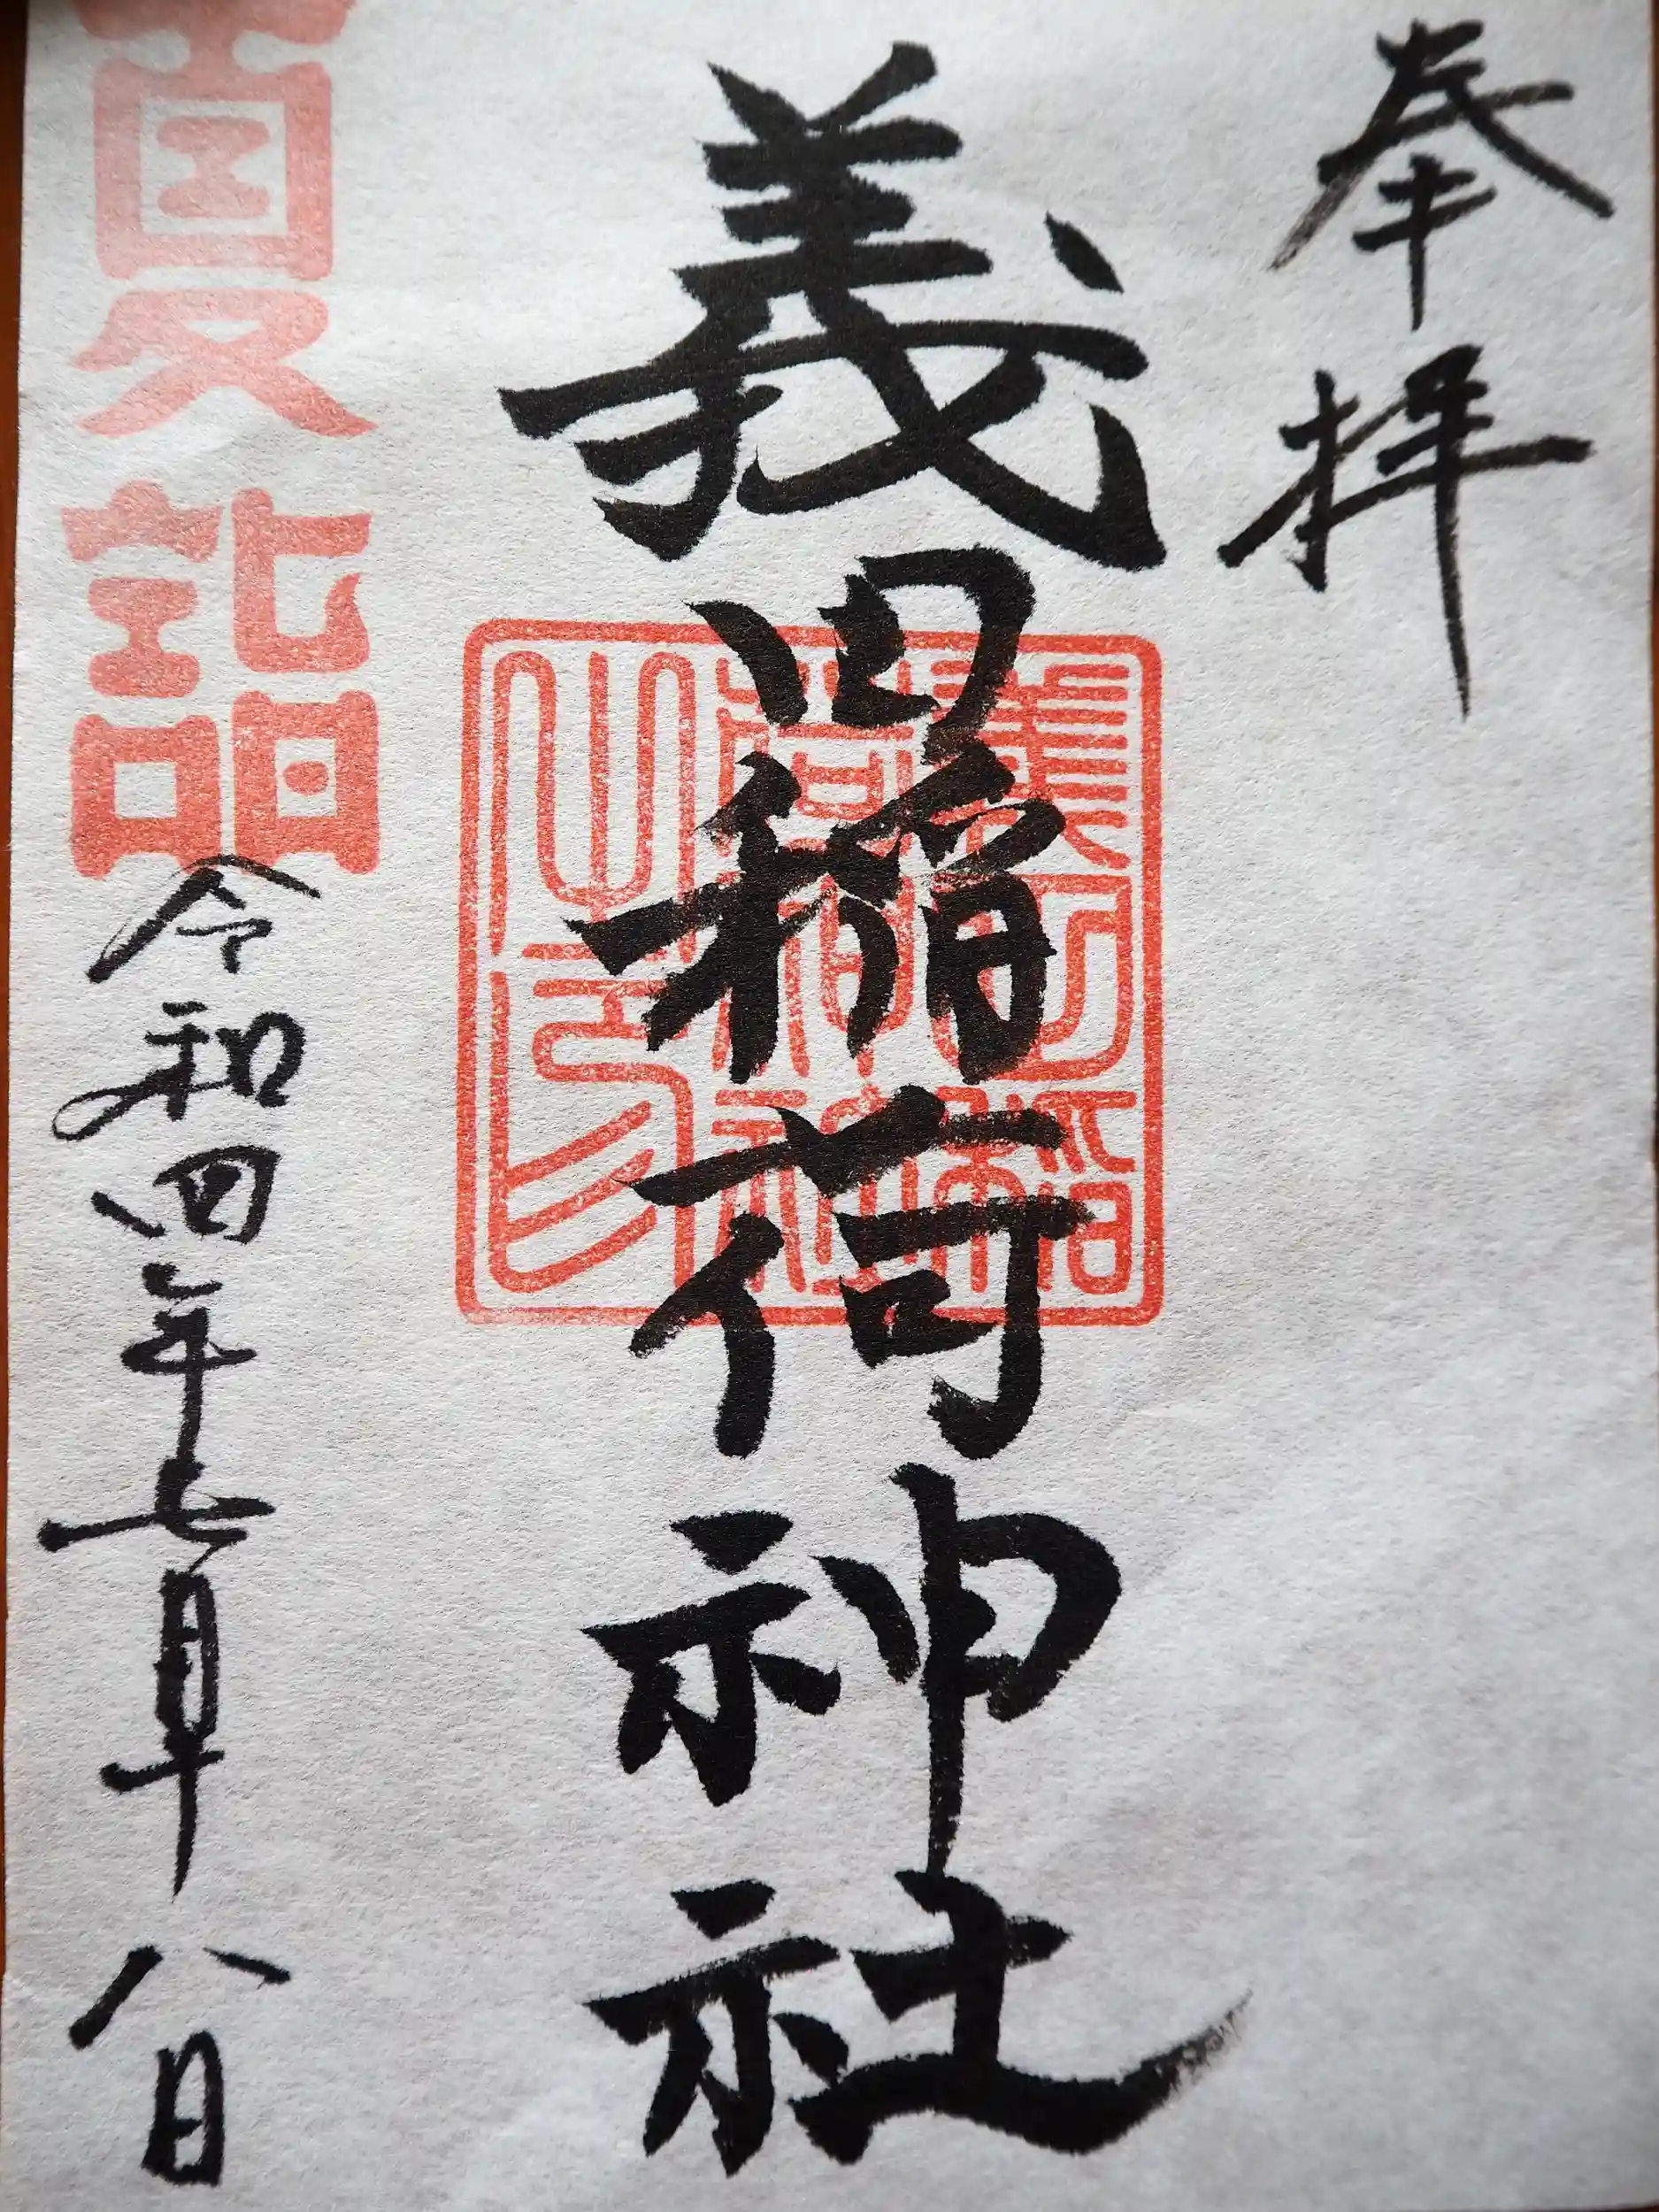 奉拝
義四稲荷神社
夏詣
令和四年七月十八日